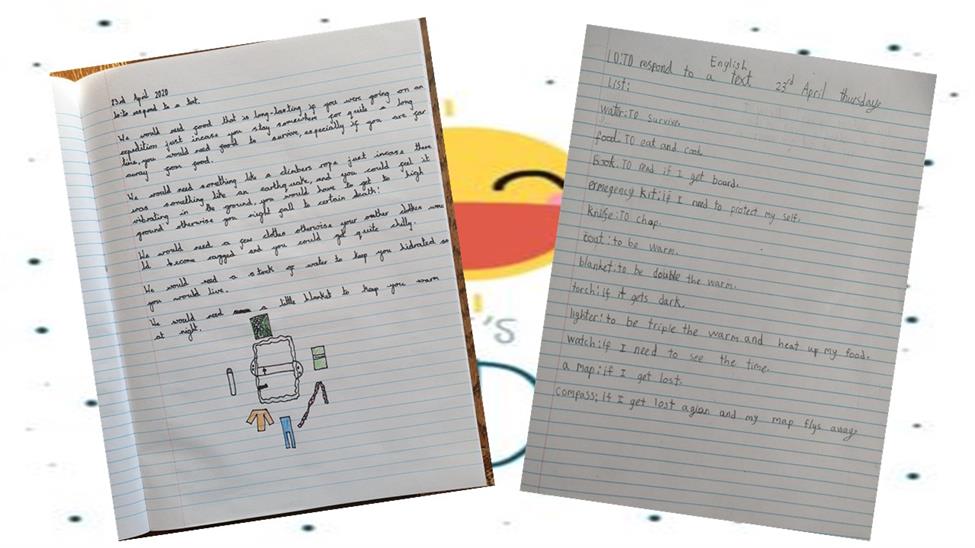 23rd April 2020
lo:to respond to a text.
We would need food that is long-lasting if you were going on an
expedition just incase you stay somewhere for quite a long
time, you would need food to survive, especially if you are far
away from food.
We would need something like a climbers rope just incase there
was something like an earthquake, and you could feel it
vibrating in the ground, you would have to get to high
ground otherwise you might fall to certain death!
We would need a few clothes otherwise your other clothes wou
ld become ragged and you could get quite chilly.
We would need a stock of water to keep you hidrated so
you would live.
We would need a little blanket to keep you warm
at night.
English
LO:TO respond to a text 23rd April thursday
List:
water:TO survive.
food:TO eat and cook
book:TO read if I get board.
ermegency kit:if I need to protect my self.
knife:TO chop.
coat:to be warm.
blanket:to be double the warm.
torch:if it gets dark.
lighter:to be triple the warm and heat up my food.
watch:if I need to see the time.
a map:if I get lost.
compass:If I get lost agian and my map flys away
'S